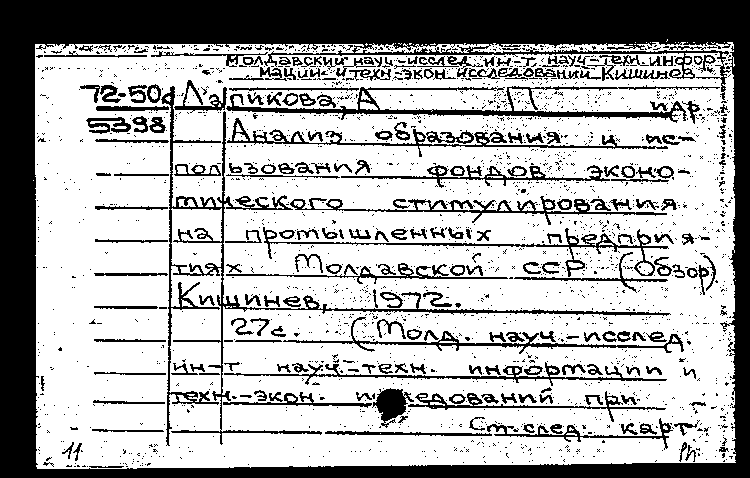 Молдавский науч.-исслед. ин-т науч.-техн. инфор-
мации и техн.-экон. исследований Кишинев
72-50d Лапикова, А П идр
5398 Анализ образования и ис-
пользования фондов эконо-
мического стимулирования
на промышленных предприя-
тиях Молдавской ССР. (Обзор)
Кишинев, 1972.
27с. (Молд. науч.-исслед.
ин-т науч.-техн. информации и
техн.-экон. исследований при
См. след. карт.
11